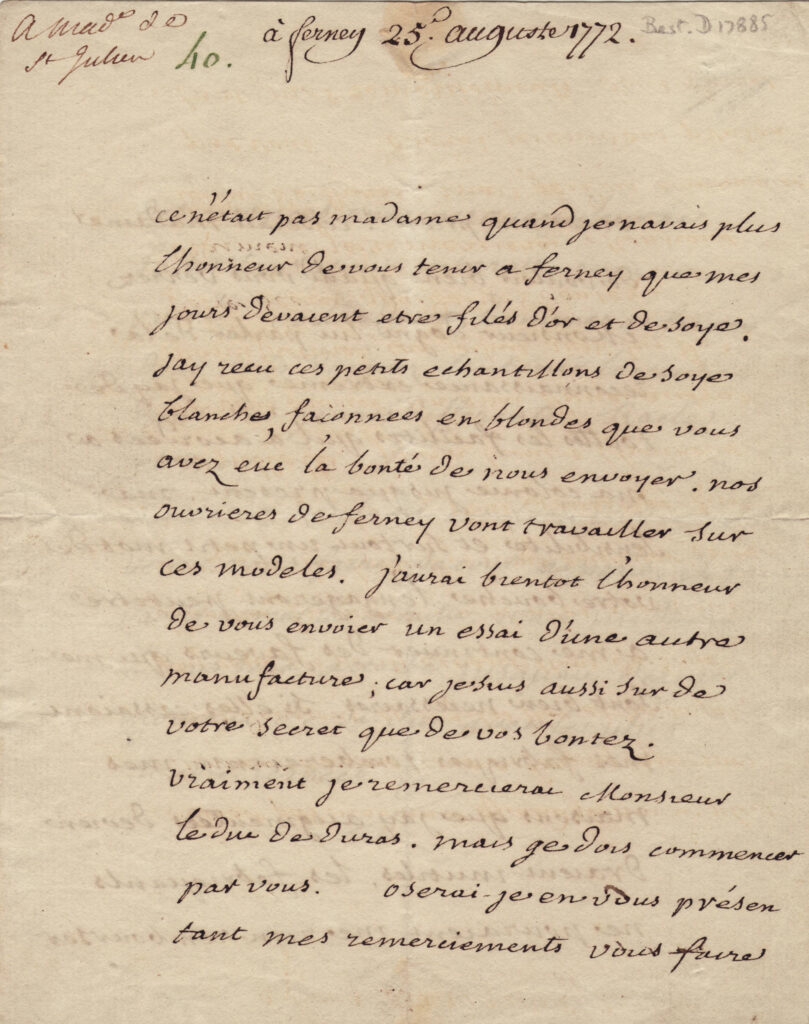 A Mad.e de
St Julien
40.
à ferney 25.e auguste 1772.
Best. D 17885
ce n'était pas madame quand je navais plus
l'honneur de vous tenir a ferney que mes
jours devaient etre filés d'or et de soye.
jay recu ces petits echantillons de soye
blanche, faconnees en blondes que vous
avez eüe la bonté de nous envoyer. nos
ouvrieres de ferney vont travailler sur
ces modeles. j'aurai bientot l'honneur
de vous envoier un essai d'une autre
manufacture; car je suis aussi sur de
votre secret que de vos bontez.
vraiment je remercierai Monsieur
le duc de duras. mais ge dois commencer
par vous. oserai-je en vous présen
tant mes remerciements vous faire